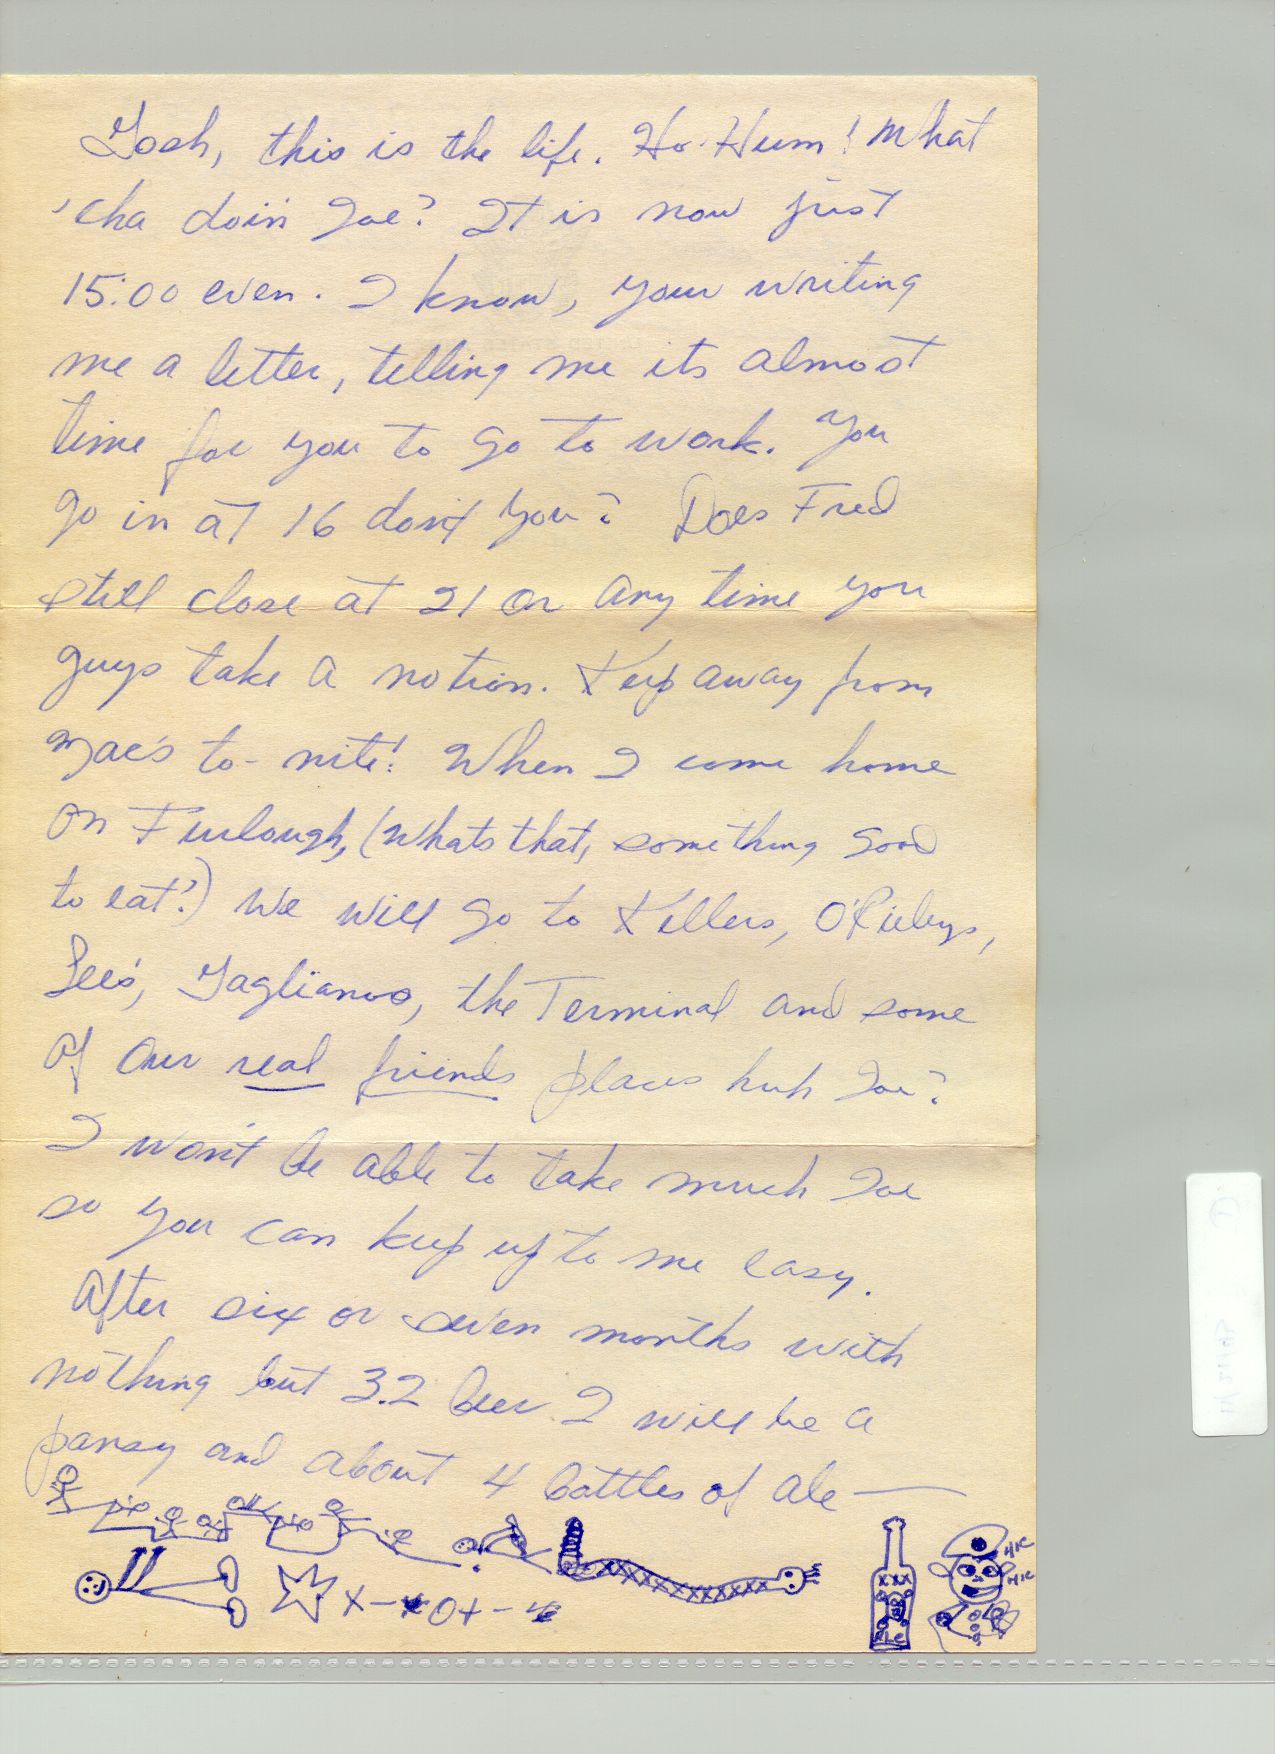 Gosh, this is the life. Ho-Hum! What
'cha doin Joe? It is now just
15:00 even. I know, your writing
me a letter, telling me its almost
time for you to go to work. You
go in at 16 don't you? Does Fred
still close at 21 or any time you
guys take a notion. Keep away from
Mac's to-nite! When I come home
on Furlough, (Whats that, something good
to eat?) We will go to Kellers, O'Rielys,
Lee's, Gaglianos, the Terminal and some
of our real friends places huh Joe?
I won't be able to take much Joe
so you can keep up to me easy.
After six or seven months with
nothing but 3.2 beer I will be a
pansy and about 4 bottles of ale —
HIC
HIC
XXX